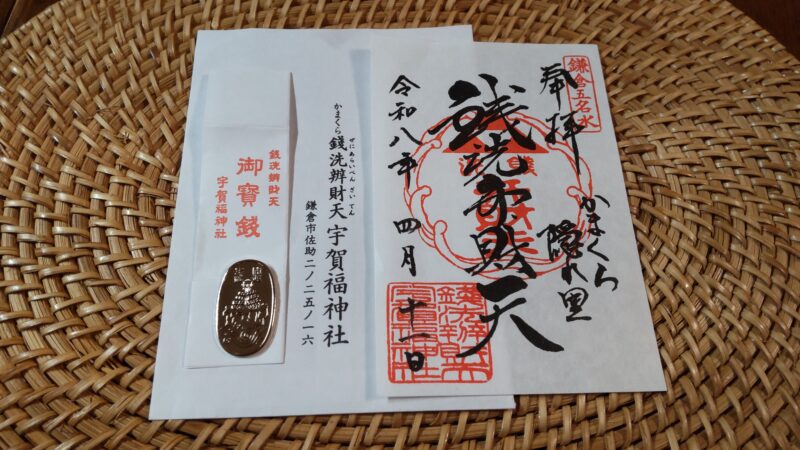 鎌倉五名水
奉拝
かまくら
隠れ里
銭洗弁財天
令和八年 四月 十一日
かまくら 錢洗辨財天 宇賀福神社
ぜにあらいべんざいてん
鎌倉市佐助二ノ二五ノ一六
銭洗辨財天
御寶錢
宇賀福神社